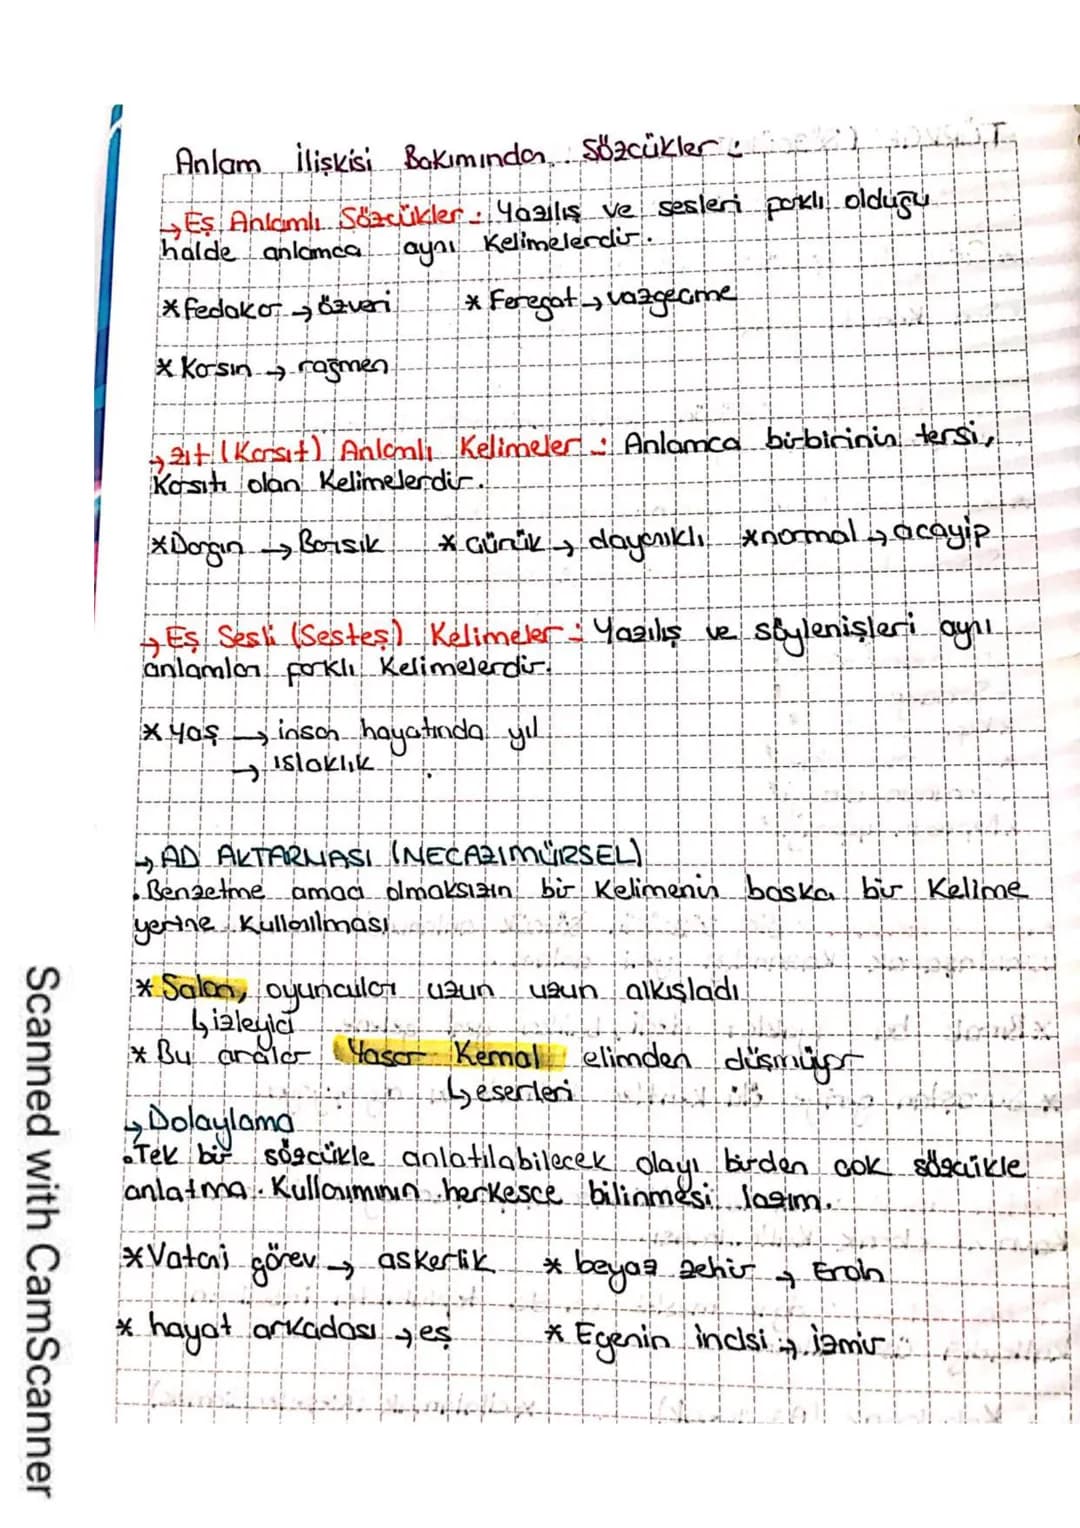 Anlam İlişkisi Bakımından Sözcükler :
→ Eş Anlamlı Sözcükler : Yazılış ve sesleri farklı olduğu
halde anlamca aynı kelimelerdir.
* fedakar → özveri * Feregat → vazgeçme
* Karşın → rağmen
→ zıt (Karşıt) Anlamlı Kelimeler : Anlamca birbirinin tersi,
Karşıtı olan Kelimelerdir.
* Dargın → Barışık * Çürük → dayanıklı * normal → acayip
→ Eş Sesli (Sesteş) Kelimeler : Yazılış ve söylenişleri aynı
anlamları farklı Kelimelerdir.
* Yaş → insan hayatında yıl
→ ıslaklık
→ AD AKTARMASI (MECAZIMÜRSEL)
. Benzetme amacı olmaksızın bir Kelimenin başka bir Kelime
yerine Kullanılması
* Salon, oyuncular uzun uzun alkışladı
↳ izleyici
* Bu aralar Yaşar Kemal elimden düşmüyor
↳ eserleri
→ Dolaylama
. Tek bir sözcükle anlatılabilecek olayı birden çok sözcükle
anlatma. Kullanımının herkesçe bilinmesi lazım.
* Vatani görev → askerlik * beyaz zehir → Eroin
* hayat arkadaşı → eş * Egenin incisi → izmir
Scanned with CamScanner